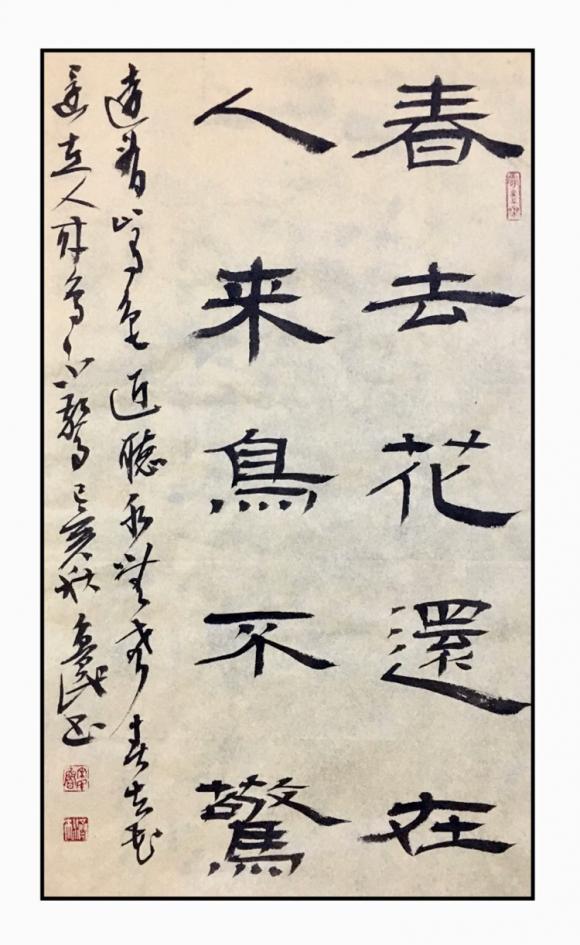 春去花還在
人来鳥不驚
遠看山有色近聽水無聲春去花
還在人来鳥不驚己亥秋民書